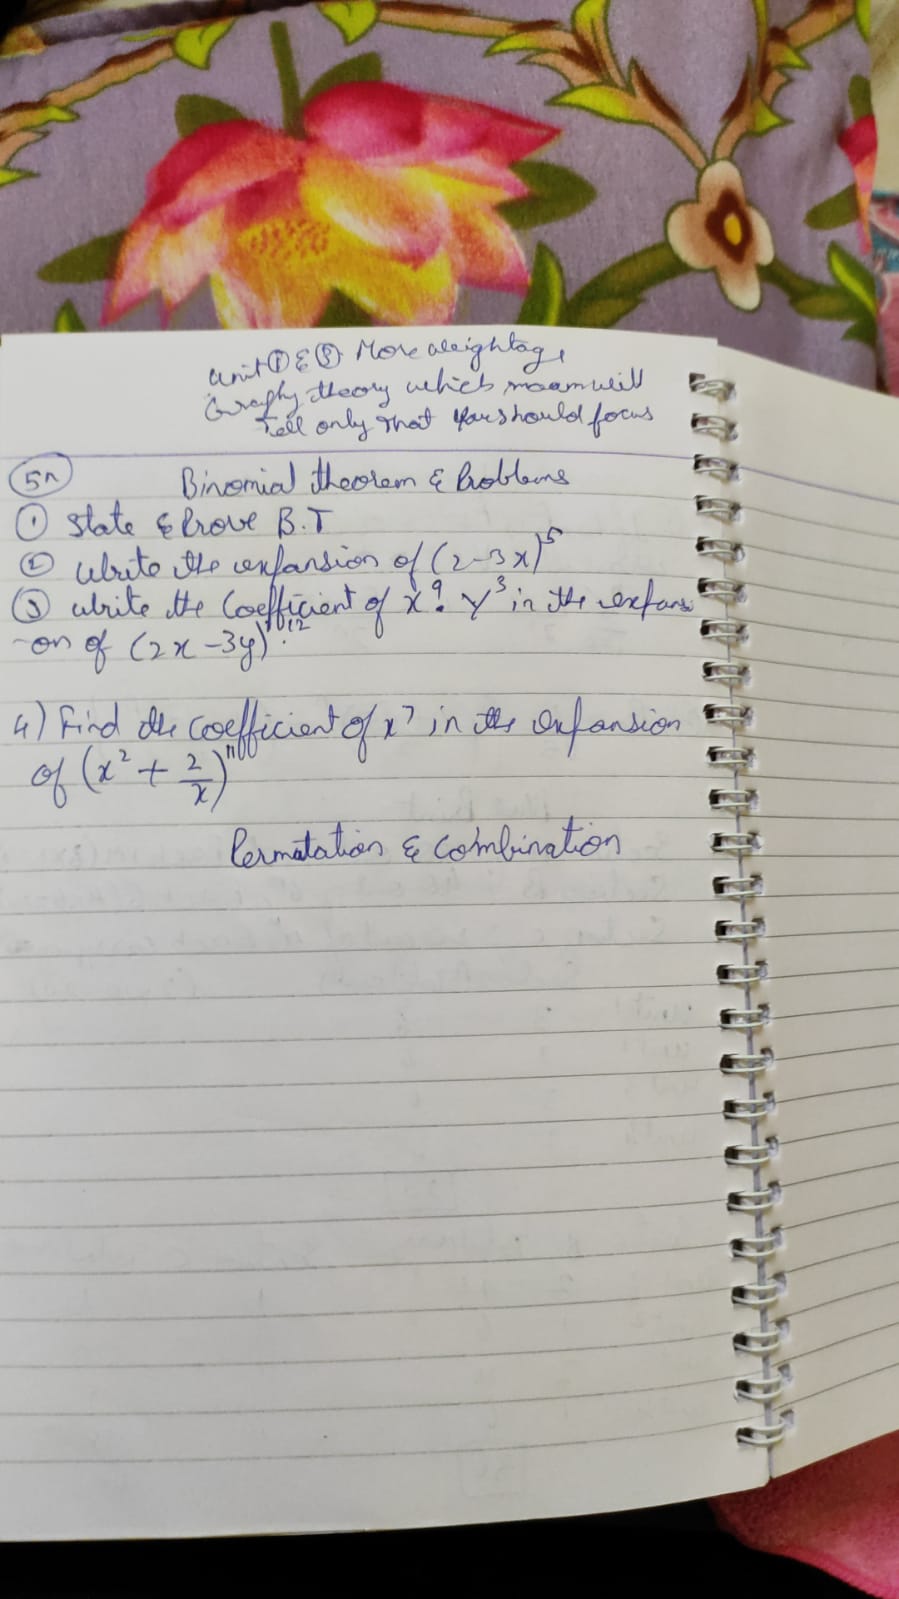 Unit ① & ⑤ More weightage
Graphy theory which maam will
Tell only that you should focus
5m Binomial theorem & Problems
① State & Prove B.T
② Write the expansion of (2-3x)⁵
③ Write the Coefficient of x⁹. y³ in the expansi
-on of (2x-3y)¹².
4) Find the coefficient of x⁷ in the expansion
of (x² + 2/x)¹¹
Permutation & Combination